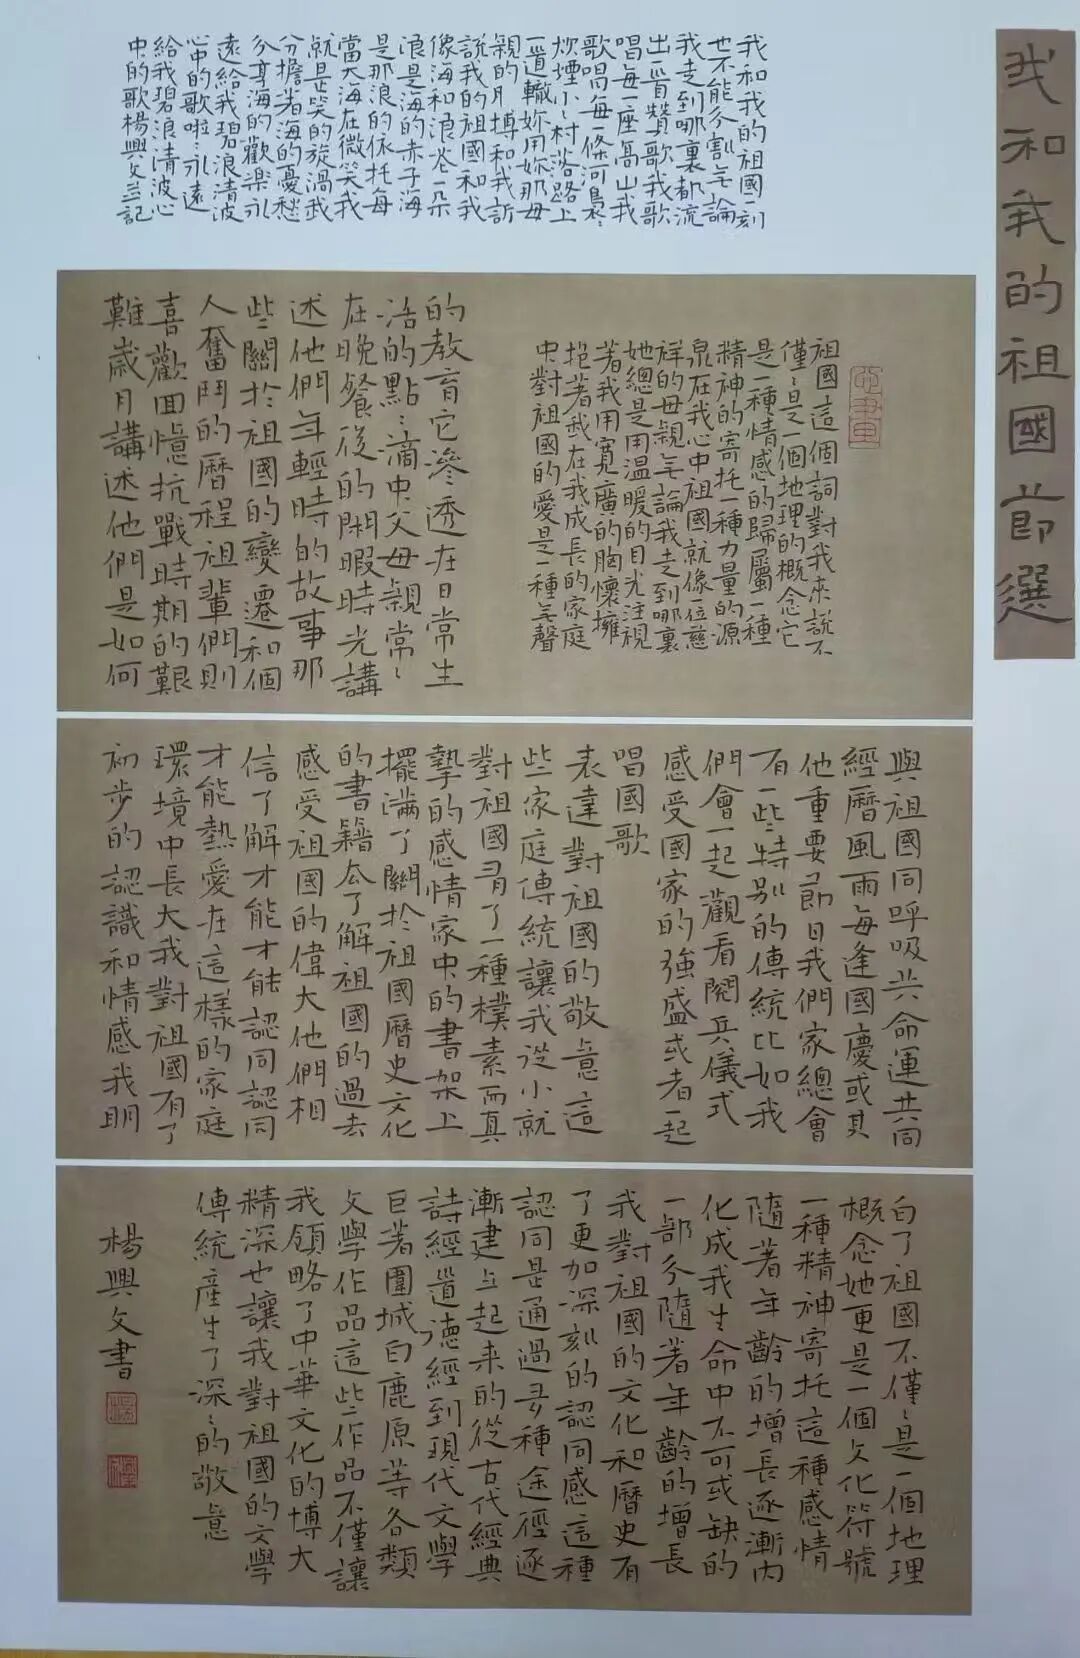 我和我的祖國節選
我和我的祖國一刻
也不能分割无論
我走到哪裏都流
出一首贊歌我歌
唱每一座高山我
歌唱每一條河裊〻
炊煙小〻村落路上
一道轍妳用妳那母
親的脉搏和我訴
說我的祖國和我
像海和浪花一朵
浪是海的赤子海
是那浪的依托每
當大海在微笑我
就是笑的旋渦我
分擔著海的憂愁
分享海的歡樂永
遠給我碧浪清波
心中的歌啦〻永遠
給我碧浪清波心
中的歌楊興文並記
祖國這個詞對我來說不
僅〻是一個地理的概念它
是一種情感的歸屬一種
精神的寄托一種力量的源
泉在我心中祖國就像一位慈
祥的母親无論我走到哪裏
她總是用溫暖的目光注視
著我用寬廣的胸懷擁
抱著我在我成長的家庭
中對祖國的愛是一種无聲
的教育它滲透在日常生
活的點〻滴中父母親常〻
在晚餐後的閑暇時光講
述他們年輕時的故事那
些關於祖國的變遷和個
人奮鬥的曆程祖輩們則
喜歡回憶抗戰時期的艱
難歲月講述他們是如何
與祖國同呼吸共命運共同
經曆風雨每逢國慶或其
他重要節日我們家總會
有一些特別的傳統比如我
們會一起觀看閱兵儀式
感受國家的強盛或者一起
唱國歌
表達對祖國的敬意這
些家庭傳統讓我從小就
對祖國有了一種樸素而真
摯的感情家中的書架上
擺滿了關於祖國曆史文化
的書籍去了解祖國的過去
感受祖國的偉大他們相
信了解才能才能認同認同
才能熱愛在這樣的家庭
環境中長大我對祖國有了
初步的認識和情感我明
白了祖國不僅〻是一個地理
概念她更是一個文化符號
一種精神寄托這種感情
隨著年齡的增長逐漸內
化成我生命中不可或缺的
一部分隨著年齡的增長
我對祖國的文化和曆史有
了更加深刻的認同感這種
認同是通過多種途徑逐
漸建立起來的從古代經典
詩經道德經到現代文學
巨著圍城白鹿原等各類
文學作品這些作品不僅讓
我領略了中華文化的博大
精深也讓我對祖國的文學
傳統產生了深〻的敬意
楊興文書